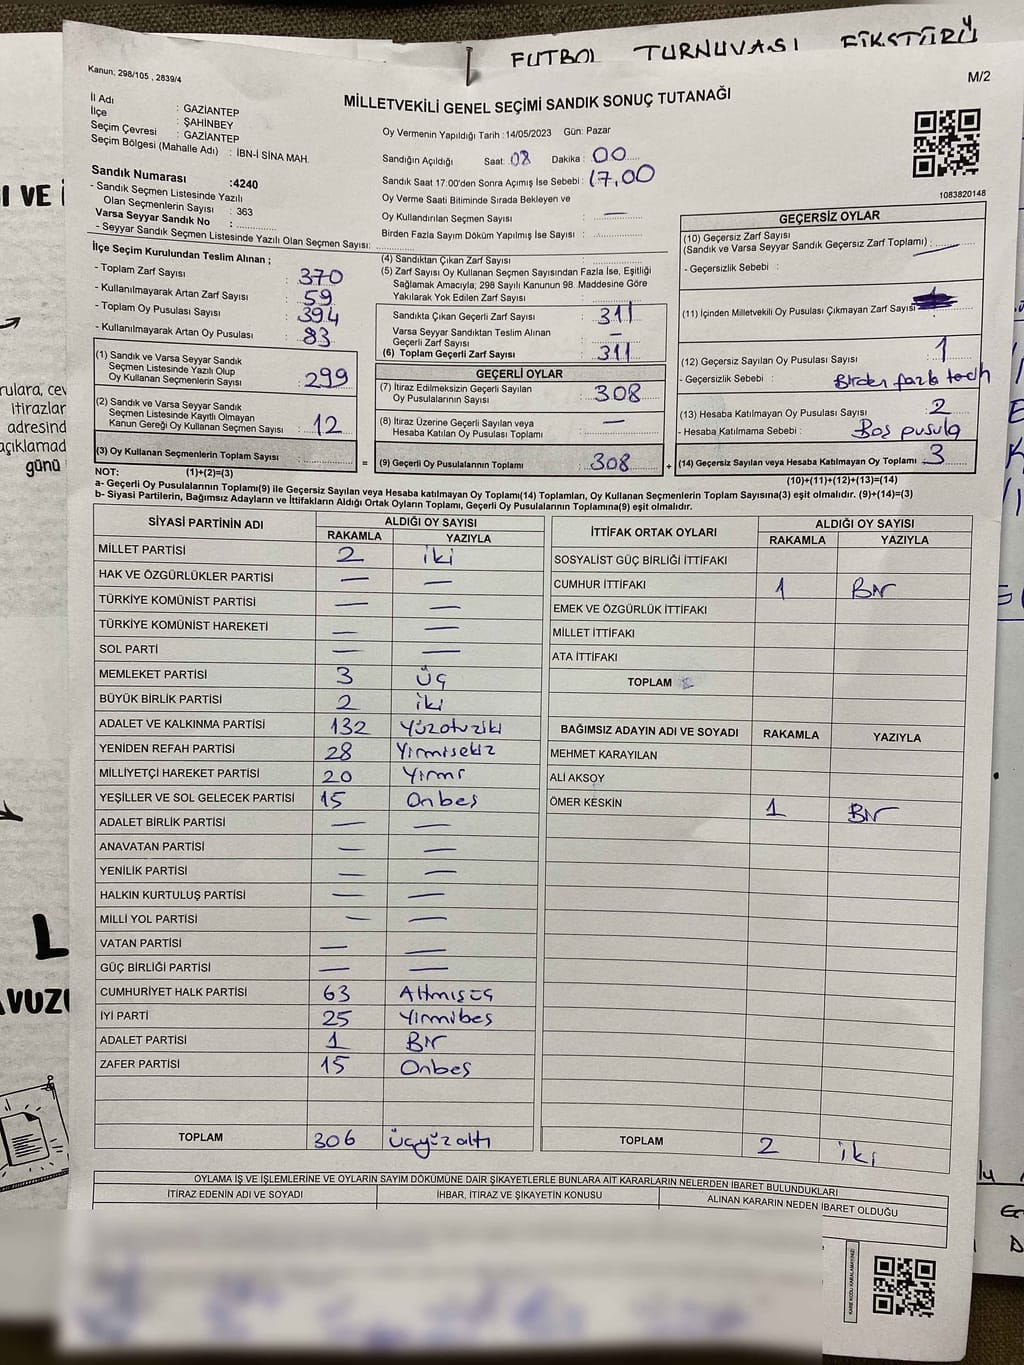 FUTBOL TURNUVASI FİKSTÜRÜ
Kanun; 298/105 , 2839/4
M/2
MİLLETVEKİLİ GENEL SEÇİMİ SANDIK SONUÇ TUTANAĞI
İl Adı : GAZİANTEP
İlçe : ŞAHİNBEY
Seçim Çevresi : GAZİANTEP
Seçim Bölgesi (Mahalle Adı) : İBN-İ SİNA MAH.
Sandık Numarası :4240
- Sandık Seçmen Listesinde Yazılı
Olan Seçmenlerin Sayısı : 363
Varsa Seyyar Sandık No :
- Seyyar Sandık Seçmen Listesinde Yazılı Olan Seçmen Sayısı:
Oy Vermenin Yapıldığı Tarih : 14/05/2023 Gün: Pazar
Sandığın Açıldığı Saat: 08 Dakika : 00
Sandık Saat 17:00'den Sonra Açımış İse Sebebi : 17,00
Oy Verme Saati Bitiminde Sırada Bekleyen ve
Oy Kullandırılan Seçmen Sayısı : —
Birden Fazla Sayım Döküm Yapılmış İse Sayısı :
1083820148
İlçe Seçim Kurulundan Teslim Alınan ;
- Toplam Zarf Sayısı : 370
- Kullanılmayarak Artan Zarf Sayısı : 59
- Toplam Oy Pusulası Sayısı : 394
- Kullanılmayarak Artan Oy Pusulası : 83
(1) Sandık ve Varsa Seyyar Sandık
Seçmen Listesinde Yazılı Olup
Oy Kullanan Seçmenlerin Sayısı : 299
(2) Sandık ve Varsa Seyyar Sandık
Seçmen Listesinde Kayıtlı Olmayan
Kanun Gereği Oy Kullanan Seçmen Sayısı : 12
(3) Oy Kullanan Seçmenlerin Toplam Sayısı :
(4) Sandıktan Çıkan Zarf Sayısı :
(5) Zarf Sayısı Oy Kullanan Seçmen Sayısından Fazla İse, Eşitliği
Sağlamak Amacıyla; 298 Sayılı Kanunun 98. Maddesine Göre
Yakılarak Yok Edilen Zarf Sayısı :
Sandıkta Çıkan Geçerli Zarf Sayısı : 311
Varsa Seyyar Sandıktan Teslim Alınan
Geçerli Zarf Sayısı : —
(6) Toplam Geçerli Zarf Sayısı : 311
GEÇERLİ OYLAR
(7) İtiraz Edilmeksizin Geçerli Sayılan
Oy Pusulalarının Sayısı : 308
(8) İtiraz Üzerine Geçerli Sayılan veya
Hesaba Katılan Oy Pusulası Toplamı : —
= (9) Geçerli Oy Pusulalarının Toplamı : 308 +
GEÇERSİZ OYLAR
(10) Geçersiz Zarf Sayısı
(Sandık ve Varsa Seyyar Sandık Geçersiz Zarf Toplamı) : —
- Geçersizlik Sebebi :
(11) İçinden Milletvekili Oy Pusulası Çıkmayan Zarf Sayısı
(12) Geçersiz Sayılan Oy Pusulası Sayısı : 1
- Geçersizlik Sebebi : Birden fazla tech
(13) Hesaba Katılmayan Oy Pusulası Sayısı : 2
- Hesaba Katılmama Sebebi : Boş pusula
(14) Geçersiz Sayılan veya Hesaba Katılmayan Oy Toplamı : 3
NOT: (1)+(2)=(3)
(10)+(11)+(12)+(13)=(14)
a- Geçerli Oy Pusulalarının Toplamı(9) ile Geçersiz Sayılan veya Hesaba katılmayan Oy Toplamı(14) Toplamları, Oy Kullanan Seçmenlerin Toplam Sayısına(3) eşit olmalıdır. (9)+(14)=(3)
b- Siyasi Partilerin, Bağımsız Adayların ve İttifakların Aldığı Ortak Oyların Toplamı, Geçerli Oy Pusulalarının Toplamına(9) eşit olmalıdır.
SİYASİ PARTİNİN ADI ALDIĞI OY SAYISI
RAKAMLA YAZIYLA
MİLLET PARTİSİ 2 iki
HAK VE ÖZGÜRLÜKLER PARTİSİ — —
TÜRKİYE KOMÜNİST PARTİSİ — —
TÜRKİYE KOMÜNİST HAREKETİ — —
SOL PARTİ — —
MEMLEKET PARTİSİ 3 üç
BÜYÜK BİRLİK PARTİSİ 2 iki
ADALET VE KALKINMA PARTİSİ 132 Yüzotuziki
YENİDEN REFAH PARTİSİ 28 Yirmisekiz
MİLLİYETÇİ HAREKET PARTİSİ 20 Yirmi
YEŞİLLER VE SOL GELECEK PARTİSİ 15 Onbeş
ADALET BİRLİK PARTİSİ — —
ANAVATAN PARTİSİ — —
YENİLİK PARTİSİ — —
HALKIN KURTULUŞ PARTİSİ — —
MİLLİ YOL PARTİSİ — —
VATAN PARTİSİ — —
GÜÇ BİRLİĞİ PARTİSİ — —
CUMHURİYET HALK PARTİSİ 63 Altmışüç
İYİ PARTİ 25 Yirmibeş
ADALET PARTİSİ 1 Bir
ZAFER PARTİSİ 15 Onbeş
TOPLAM 306 üçyüzaltı
İTTİFAK ORTAK OYLARI ALDIĞI OY SAYISI
RAKAMLA YAZIYLA
SOSYALİST GÜÇ BİRLİĞİ İTTİFAKI
CUMHUR İTTİFAKI 1 Bir
EMEK VE ÖZGÜRLÜK İTTİFAKI
MİLLET İTTİFAKI
ATA İTTİFAKI
TOPLAM
BAĞIMSIZ ADAYIN ADI VE SOYADI RAKAMLA YAZIYLA
MEHMET KARAYILAN
ALİ AKSOY
ÖMER KESKİN 1 Bir
TOPLAM 2 iki
OYLAMA İŞ VE İŞLEMLERİNE VE OYLARIN SAYIM DÖKÜMÜNE DAİR ŞİKAYETLERLE BUNLARA AİT KARARLARIN NELERDEN İBARET BULUNDUKLARI
İTİRAZ EDENİN ADI VE SOYADI İHBAR, İTİRAZ VE ŞİKAYETİN KONUSU ALINAN KARARIN NEDEN İBARET OLDUĞU
KARE KODU KARALAMAYINIZ!
I VE İ
rulara, cev
itirazlar
adresind
açıklamad
günü
L
AVUZU